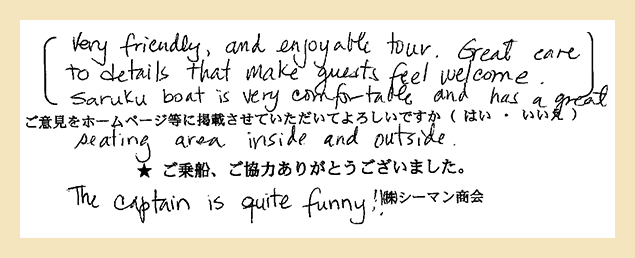 Very friendly, and enjoyable tour. Great care
to details that make guests feel welcome.
Saruku boat is very comfortable and has a great
ご意見をホームページ等に掲載させていただいてよろしいですか ( はい ・ いいえ )
seating area inside and outside.
★ ご乗船、ご協力ありがとうございました。
The captain is quite funny!! ㈱シーマン商会